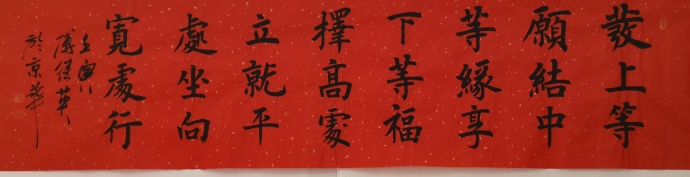 發上等
願結中
等緣享
下等福
擇高處
立就平
處坐向
寬處行
壬寅
於京華